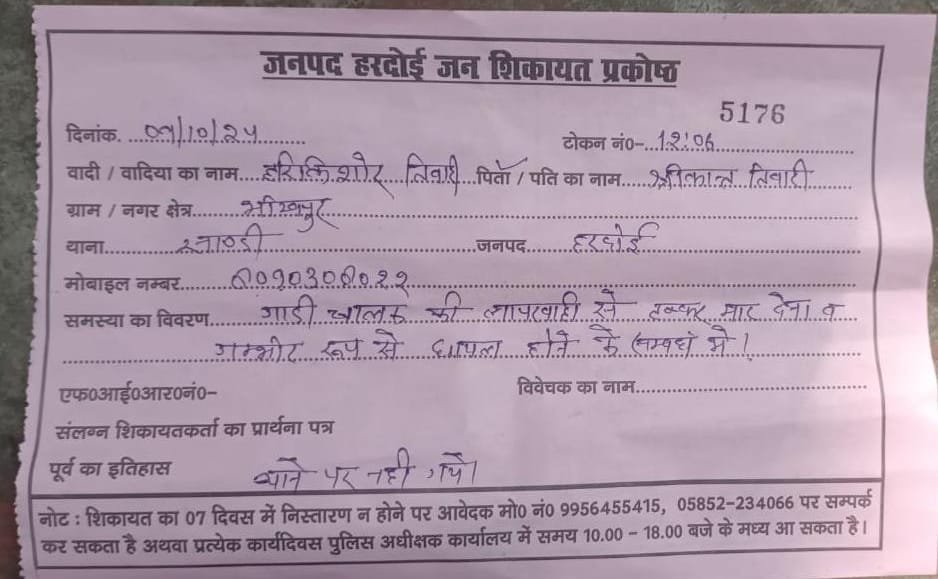 जनपद हरदोई जन शिकायत प्रकोष्ठ
5176
दिनांक. 09/10/24 टोकन नं०- 12:06
वादी / वादिया का नाम हरिकिशोर तिवारी पिता / पति का नाम श्रीकान्त तिवारी
ग्राम / नगर क्षेत्र भीखपुर
थाना साण्डी जनपद हरदोई
मोबाइल नम्बर
समस्या का विवरण गाडी चालक की लापरवाही से टक्कर मार देना व
गम्भीर रूप से घायल होने के सम्बधं मे।
एफ०आई०आर०नं०- विवेचक का नाम
संलग्न शिकायतकर्ता का प्रार्थना पत्र
पूर्व का इतिहास थाने पर नही गये।
नोट : शिकायत का 07 दिवस में निस्तारण न होने पर आवेदक मो0 नं0 9956455415, 05852-234066 पर सम्पर्क
कर सकता है अथवा प्रत्येक कार्यदिवस पुलिस अधीक्षक कार्यालय में समय 10.00 - 18.00 बजे के मध्य आ सकता है।